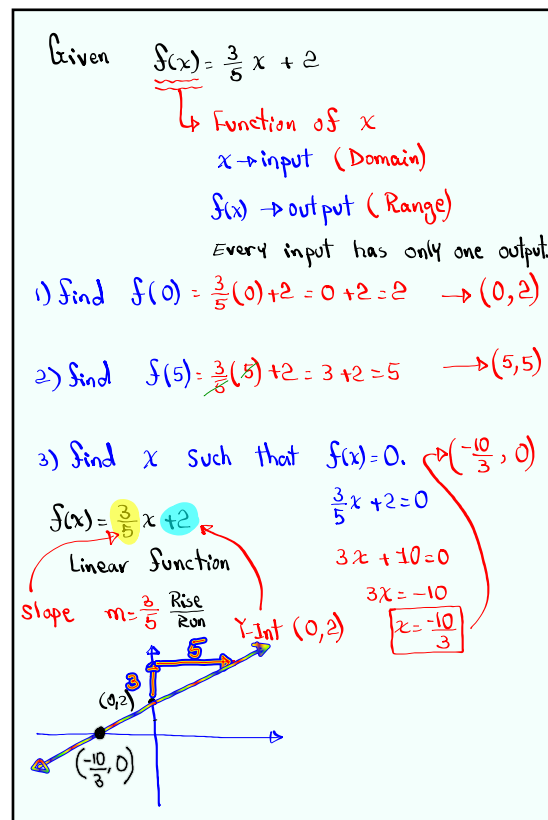 Given f(x) = 3/5 x + 2
Function of x
x → input (Domain)
f(x) → output (Range)
Every input has only one output.
1) find f(0) = 3/5 (0) + 2 = 0 + 2 = 2 → (0, 2)
2) find f(5) = 3/5 (5) + 2 = 3 + 2 = 5 → (5, 5)
3) find x such that f(x) = 0. → (-10/3, 0)
3/5 x + 2 = 0
3x + 10 = 0
3x = -10
x = -10/3
f(x) = 3/5 x + 2
Linear function
Slope m = 3/5 Rise/Run
Y-Int (0, 2)
5
3
(0, 2)
(-10/3, 0)